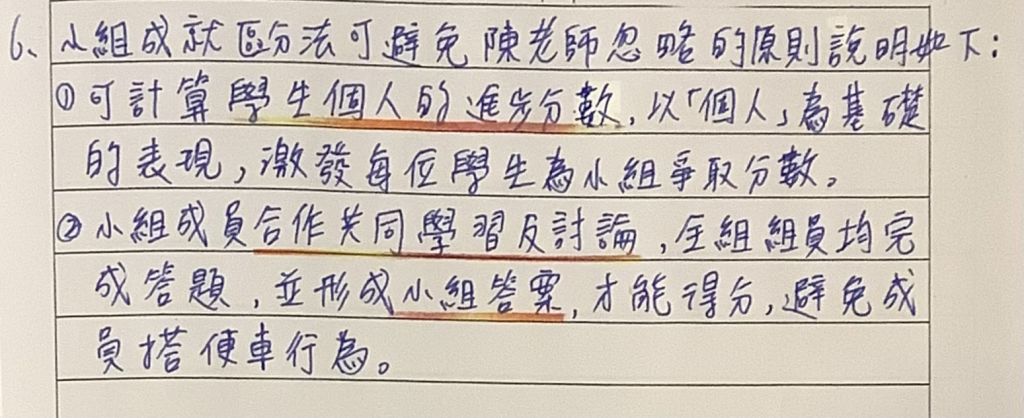 6、小組成就區分法可避免陳老師忽略的原則說明如下:
①可計算學生個人的進步分數,以「個人」為基礎
的表現,激發每位學生為小組爭取分數。
②小組成員合作共同學習及討論,全組組員均完
成答題,並形成小組答案,才能得分,避免成
員搭便車行為。